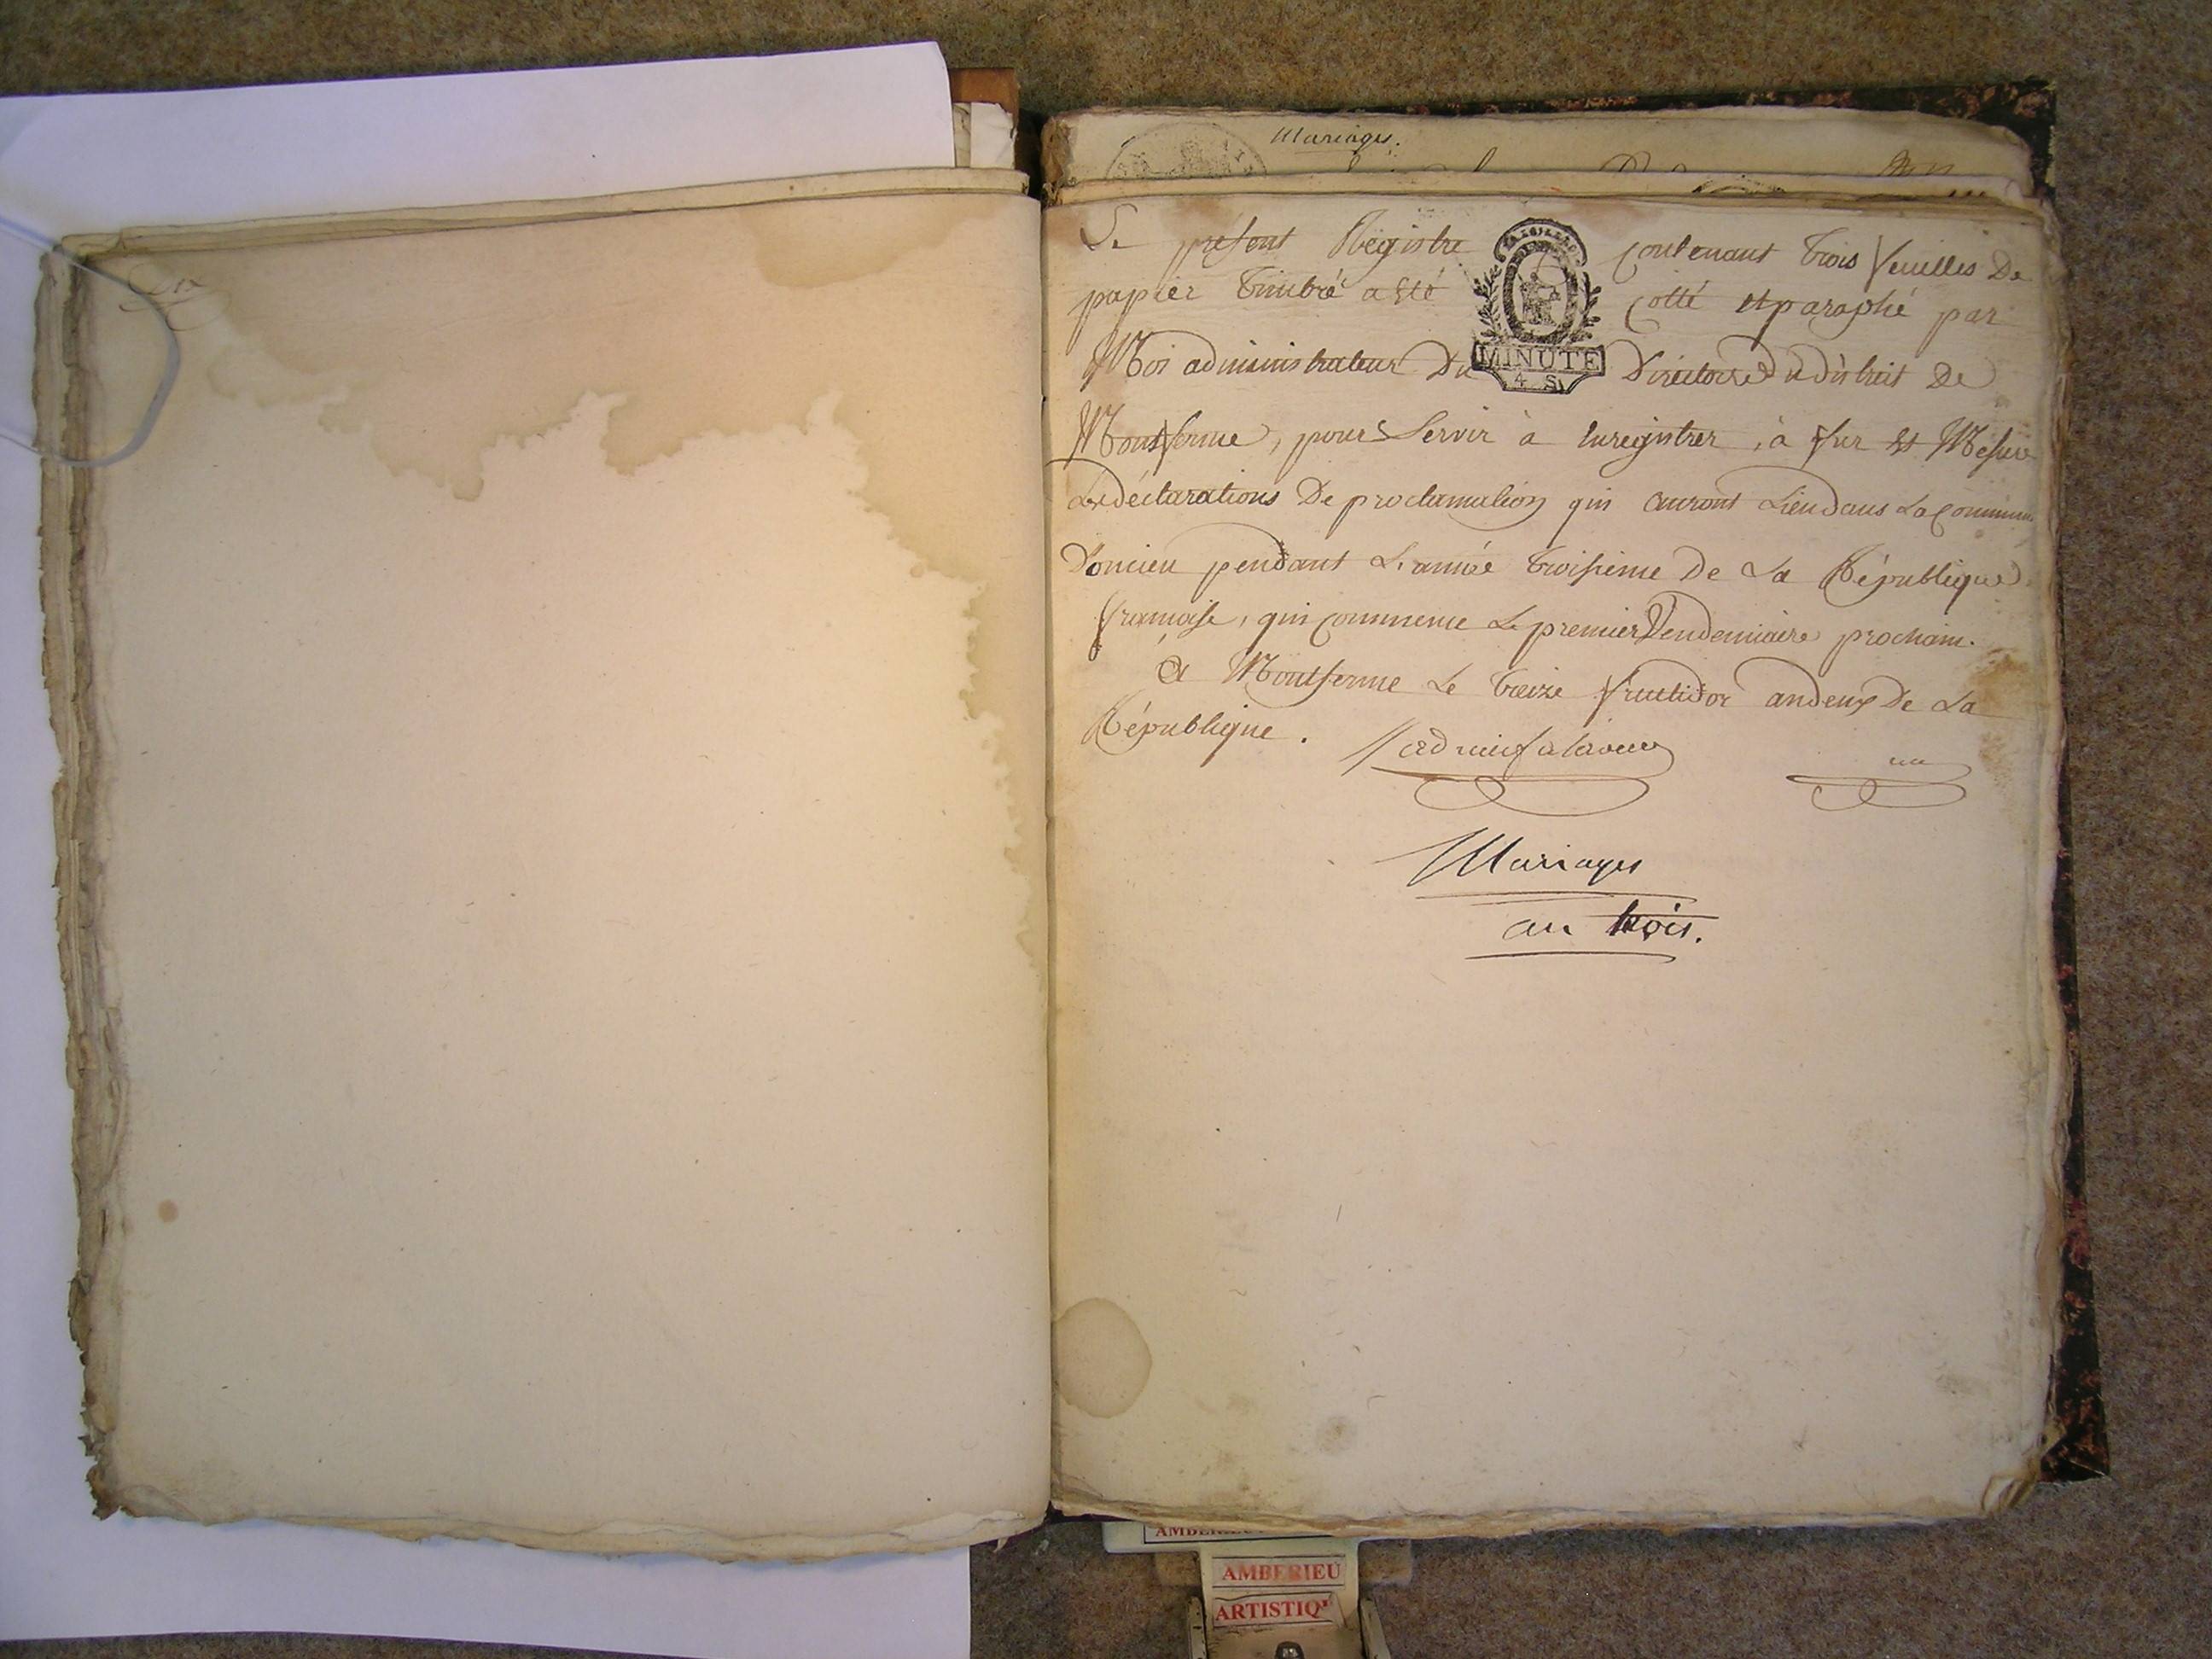 Mariages.
Dix
Le présent Régistre contenant trois feuilles De
papier timbré a Eté cotté et paraphé par
Moi administrateur Du Directoire Du district De
MINUTE
4 S
Montferme, pour Servir à Enregistrer, à fur Et Mesure
Les déclarations De proclamation qui auront Lieu dans La Commune
D'oncieu pendant L'année troisieme De La République
française, qui commence Le premier Vendemiaire prochain.
A Montferme Le treize fructidor an deux De La
République.
un
Mariages
an trois.
AMBERIEU
ARTISTIQ